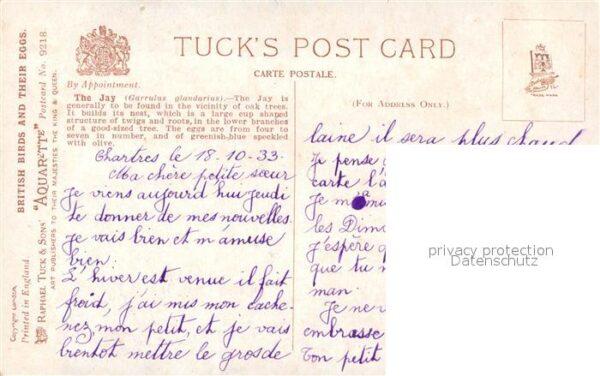 BRITISH BIRDS AND THEIR EGGS.
"AQUARETTE" Postcard No. 9218.
RAPHAEL TUCK & SONS'
ART PUBLISHERS TO THEIR MAJESTIES THE KING & QUEEN.
Printed in England.
Copyright London
TUCK'S POST CARD
CARTE POSTALE.
By Appointment.
(FOR ADDRESS ONLY.)
TRADE MARK
The Jay (Garrulus glandarius).—The Jay is
generally to be found in the vicinity of oak trees.
It builds its nest, which is a large cup shaped
structure of twigs and roots, in the lower branches
of a good-sized tree. The eggs are from four to
seven in number, and of greenish-blue speckled
with olive.
Chartres le 18-10-33.
Ma chère petite sœur
Je viens aujourd'hui jeudi
te donner de mes nouvelles.
Je vais bien et m'amuse
bien.
L'hiver est venue il fait
froid, j'ai mis mon cache-
nez, mon petit, et je vais
bientot mettre le gros de
laine il sera plus chaud
Je pense
carte l'a
Je m'
les Dim
j'espère q
que tu
man.
Je ne v
embrasse
Ton petit
privacy protection
Datenschutz